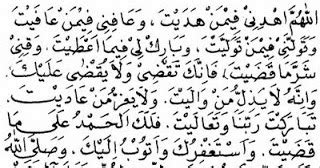 اَللّٰهُمَّ اهْدِنِيْ فِيْمَنْ هَدَيْتَ ، وَعَافِنِيْ فِيْمَنْ عَافَيْتَ
وَتَوَلَّنِيْ فِيْمَنْ تَوَلَّيْتَ ، وَبَارِكْ لِيْ فِيْمَا اَعْطَيْتَ . وَقِنِيْ
شَرَّمَا قَضَيْتَ ، فَاِنَّكَ تَقْضِيْ وَلَا يُقْضٰى عَلَيْكَ .
وَاِنَّهُ لَا يَذِلُّ مَنْ وَالَيْتَ . وَلَا يَعِزُّ مَنْ عَادَيْتَ .
تَبَارَكْتَ رَبَّنَا وَتَعَالَيْتَ . فَلَكَ الْحَمْدُ عَلٰى مَا
قَضَيْتَ . وَاَسْتَغْفِرُكَ وَاَتُوْبُ اِلَيْكَ . وَصَلَّى اللهُ